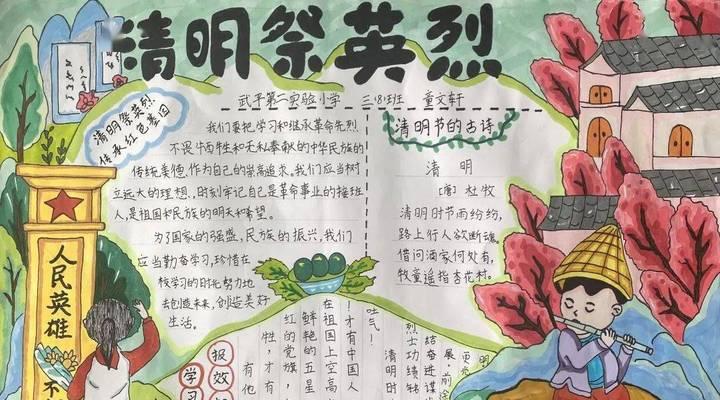 清明祭英烈
武平第二实验小学 三(8)班 童文轩
清明祭英烈
传承红色基因
我们要把学习和继承革命先烈
不畏牺牲和无私奉献的中华民族的
传统美德,作为自己的崇高追求。我们应当树
立远大的理想,时刻牢记自己是革命事业的接班
人,是祖国和民族的明天和希望。
为了国家的强盛,民族的振兴,我们
应当勤奋学习,珍惜在
校学习的时光,努力地
去创造未来,创造美好
生活。
清明节的古诗
清明
[唐] 杜牧
清明时节雨纷纷,
路上行人欲断魂。
借问酒家何处有,
牧童遥指杏花村。
人民英雄
不
报效
学习
吐气!
!才有中国人
在祖国上空高
鲜艳的五星
红的党旗,
牲,才有
有他
明
更亮
展,前途
结奋进谋
烈士功绩
清明时